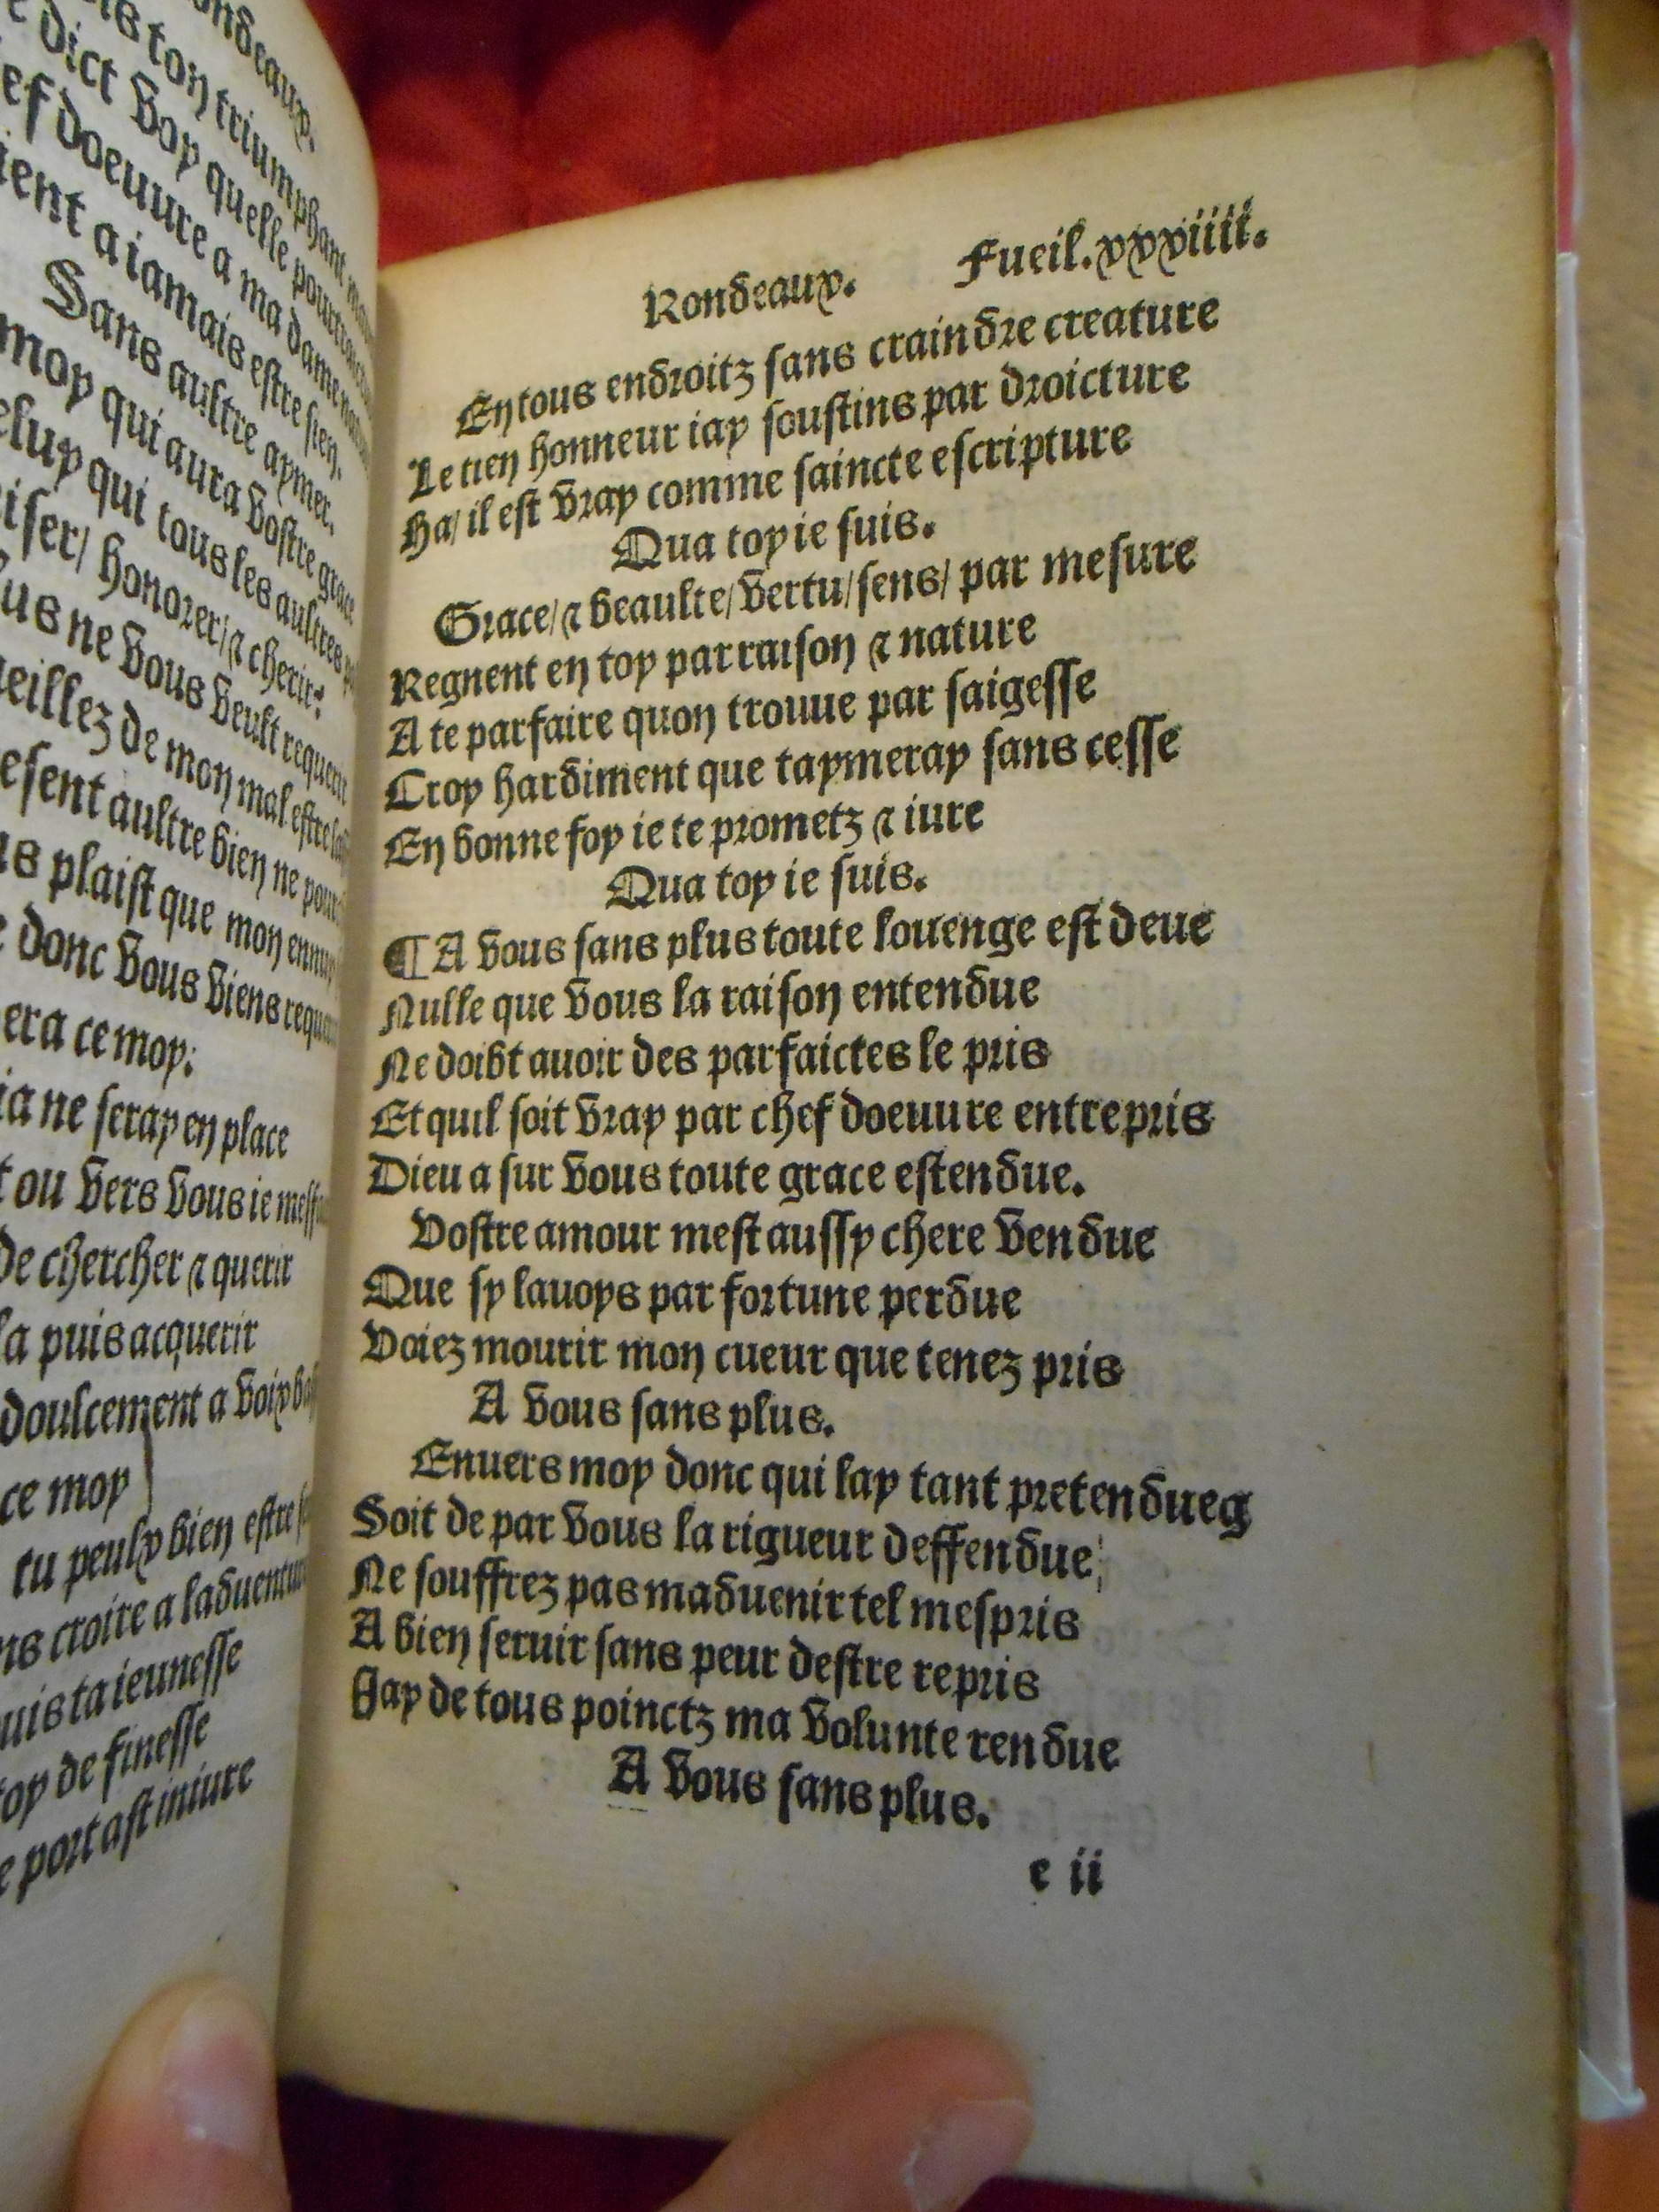 ondeaux.
is ton triumphant
e dict voy quelle
ef doeuure a ma dame
ient a iamais estre sien.
Sans aultre aymer.
moy qui aura vostre grace
eluy qui tous les aultres
iser/ honorer/ ⁊ cherir:
us ne vous veult requerir
ueillez de mon mal estre
esent aultre bien ne
us plaist que mon ennuy
e donc vous viens
era ce moy:
ia ne seray en place
t ou vers vous ie
de chercher ⁊ querir
la puis acquerir
doulcement a voix
ce moy
tu peulx bien estre
ns croire a laduenture
uis ta ieunesse
toy de finesse
e portast iniure
Rondeaux. Fueil. xxxiiii.
En tous endroitz sans craindre creature
Le tien honneur iay soustins par droicture
Ha/ il est vray comme saincte escripture
Qua toy ie suis.
Grace/ ⁊ beaulte/ vertu/ sens/ par mesure
Regnent en toy par raison ⁊ nature
A te parfaire quon trouue par saigesse
Croy hardiment que taymeray sans cesse
En bonne foy ie te prometz ⁊ iure
Qua toy ie suis.
¶ A vous sans plus toute louenge est deue
Nulle que vous la raison entendue
Ne doibt auoir des parfaictes le pris
Et quil soit vray par chef doeuure entrepris
Dieu a sur vous toute grace estendue.
Vostre amour mest aussy chere vendue
Que sy lauoys par fortune perdue
Voiez mourir mon cueur que tenez pris
A vous sans plus.
Enuers moy donc qui lay tant pretendueg
Soit de par vous la rigueur deffendue
Ne souffrez pas maduenir tel mespris
A bien seruir sans peur destre repris
Jay de tous poinctz ma volunte rendue
A vous sans plus.
e ii